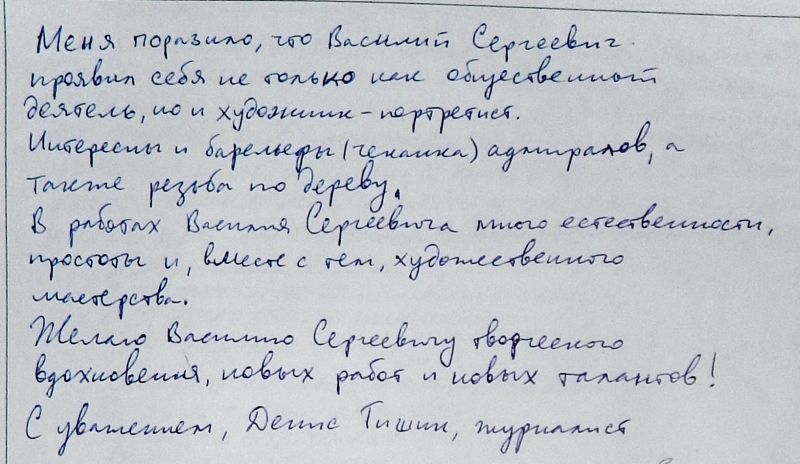 Меня поразило, что Василий Сергеевич
проявил себя не только как общественный
деятель, но и художник-портретист.
Интересны и барельефы (чеканка) адмиралов, а
также резьба по дереву.
В работах Василия Сергеевича много естественности,
простоты и, вместе с тем, художественного
мастерства.
Желаю Василию Сергеевичу творческого
вдохновения, новых работ и новых талантов!
С уважением, Денис Тишин, журналист